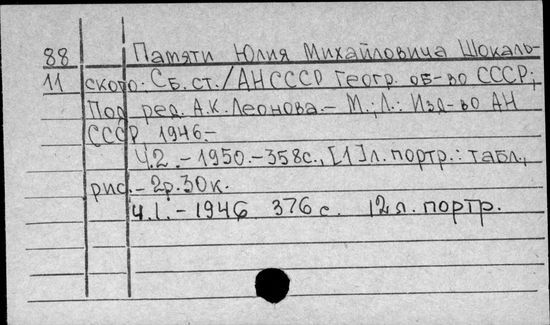 88 Памяти Юлия Михайловича Шокаль-
11 ского. Сб. ст./АН СССР Геогр. об-во СССР;
Под ред. А.К. Леонова.- М.; Л.: Изд-во АН
СССР, 1946.-
Ч.2.-1950.-358с., [1]л. портр.: табл.,
рис.-2р.30к.
Ч.1.-1946 376 с. 12 л. портр.